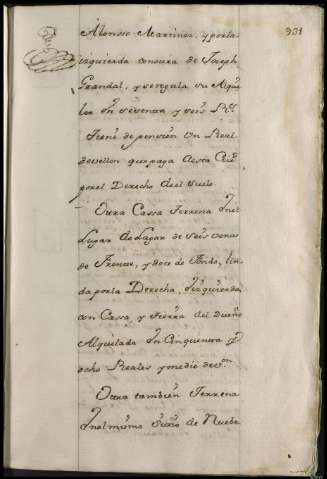 931
Alonso Martinez, y por la
izquierda con otra de Joseph
Grandal, y se regula su Alqui
ler En sesenta y seis Rs
Tiene de pension Un Real
de vellon que paga a esta
por el Derecho de el suelo
Ottra Cassa Terrena En el
Lugar de Lagar de seis varas
de Frente, y doce de fondo, lin
da por la Derecha, E izquierda,
con Cassa, y tierra del dueño
Alquilada En Cinquenta y
ocho Reales y medio de von
Ottra tambien Terrena
En el mismo sitio de Nuebe